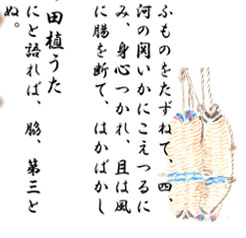 ふものをたずねて、四、
河の関いかにこえつるに
み、身心つかれ、且は風
に腸を断て、はかばかし
田植うた
にと語れば、脇、第三と
ぬ。